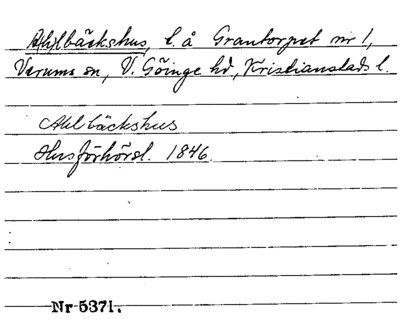 Ahlbäckshus, l. å Grantorpet nr 1,
Verums sn, V. Göinge hd, Kristianstads l.
Ahlbäckshus
Husförhörsl. 1846.
Nr 5371.